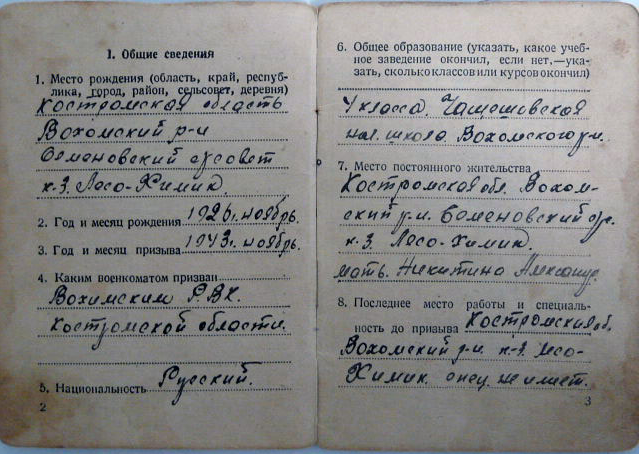 I. Общие сведения
1. Место рождения (область, край, респуб-
лика, город, район, сельсовет, деревня)
Костромская область
Вохомский р-н
Семеновский с/совет
к-з. Лесо-Химик.
2. Год и месяц рождения 1926 г. ноябрь.
3. Год и месяц призыва 1943 г. ноябрь.
4. Каким военкоматом призван
Вохомским РВК.
Костромской области.
5. Национальность Русский.
2
6. Общее образование (указать, какое учеб-
ное заведение окончил, если нет,—ука-
зать, сколько классов или курсов окончил)
4 класса.
нач. школа Вохомского р-н.
7. Место постоянного жительства
Костромская обл. Вохом-
ский р-н. Семеновский с/с.
к-з. Лесо-Химик.
мать. Никитина Александ.
8. Последнее место работы и специаль-
ность до призыва Костромская об.
Вохомский р-н. к-з. Лесо-
Химик. спец. не имеет.
3